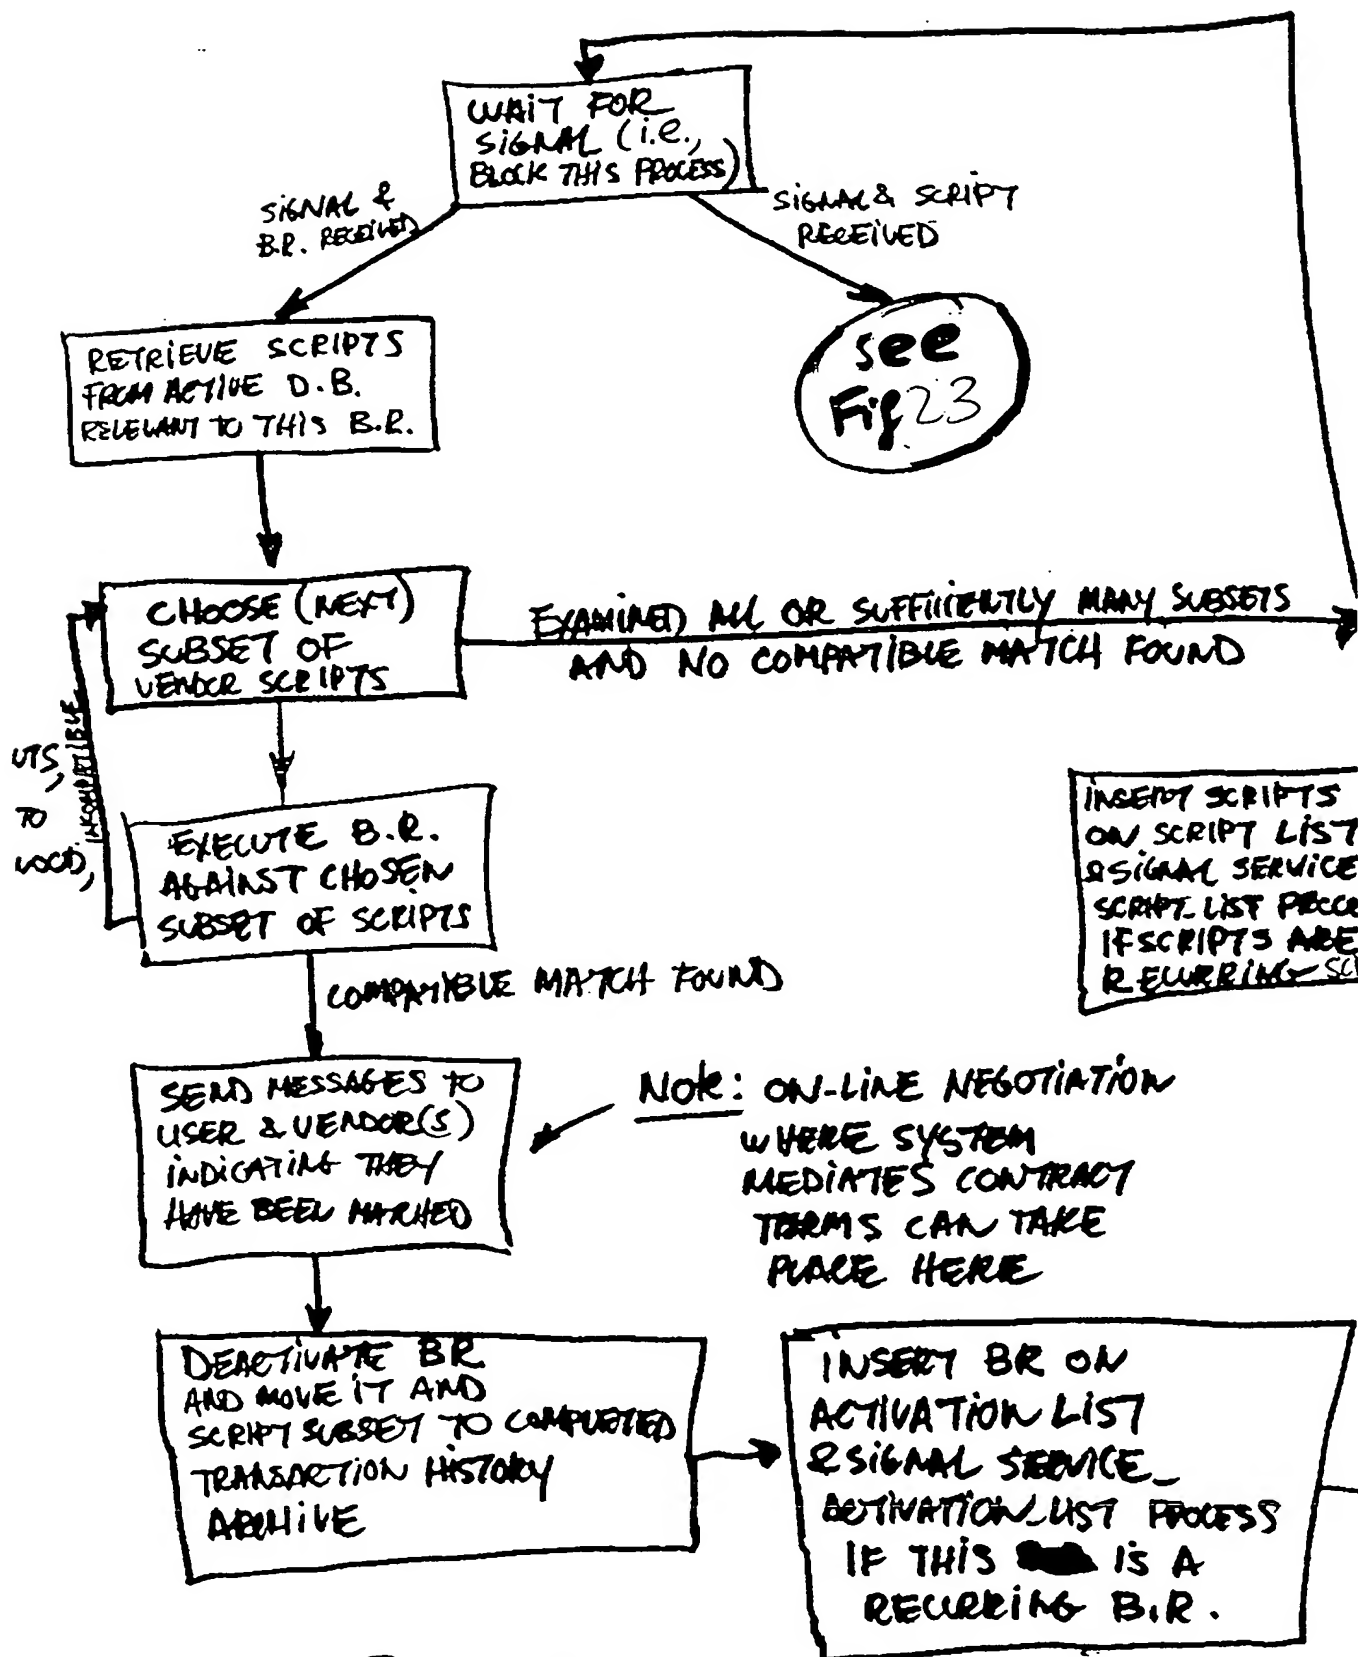 WAIT FOR
SIGNAL (i.e.,
BLOCK THIS PROCESS)
SIGNAL &
B.R. RECEIVED
SIGNAL & SCRIPT
RECEIVED
RETRIEVE SCRIPTS
FROM ACTIVE D.B.
RELEVANT TO THIS B.R.
see
Fig 23
CHOOSE (NEXT)
SUBSET OF
VENDOR SCRIPTS
EXAMINED ALL OR SUFFICIENTLY MANY SUBSETS
AND NO COMPATIBLE MATCH FOUND
UTS,
TO
INCOMPATIBLE
EXECUTE B.R.
AGAINST CHOSEN
SUBSET OF SCRIPTS
INSERT SCRIPTS
ON SCRIPT LIST
& SIGNAL SERVICE
SCRIPT_LIST PROCE
IF SCRIPTS ARE
RECURRING SC
COMPATIBLE MATCH FOUND
SEND MESSAGES TO
USER & VENDOR(S)
INDICATING THEY
HAVE BEEN MATCHED
Note: ON-LINE NEGOTIATION
WHERE SYSTEM
MEDIATES CONTRACT
TERMS CAN TAKE
PLACE HERE
DEACTIVATE BR
AND MOVE IT AND
SCRIPT SUBSET TO COMPLETED
TRANSACTION HISTORY
ARCHIVE
INSERT BR ON
ACTIVATION LIST
& SIGNAL SERVICE_
ACTIVATION_LIST PROCESS
IF THIS IS A
RECURRING B.R.